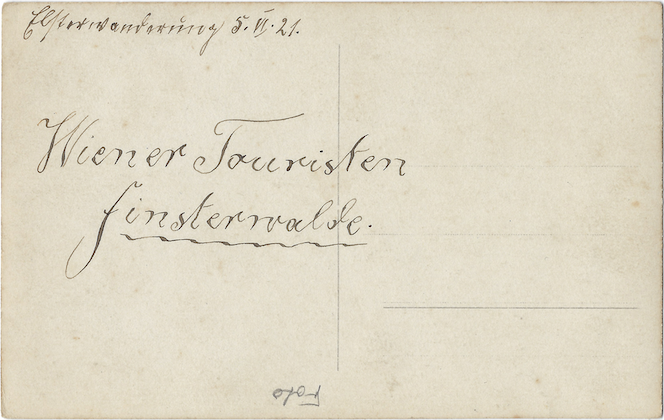 Elsterwanderung 5. VI. 21.
Wiener Touristen
Finsterwalde.
Foto